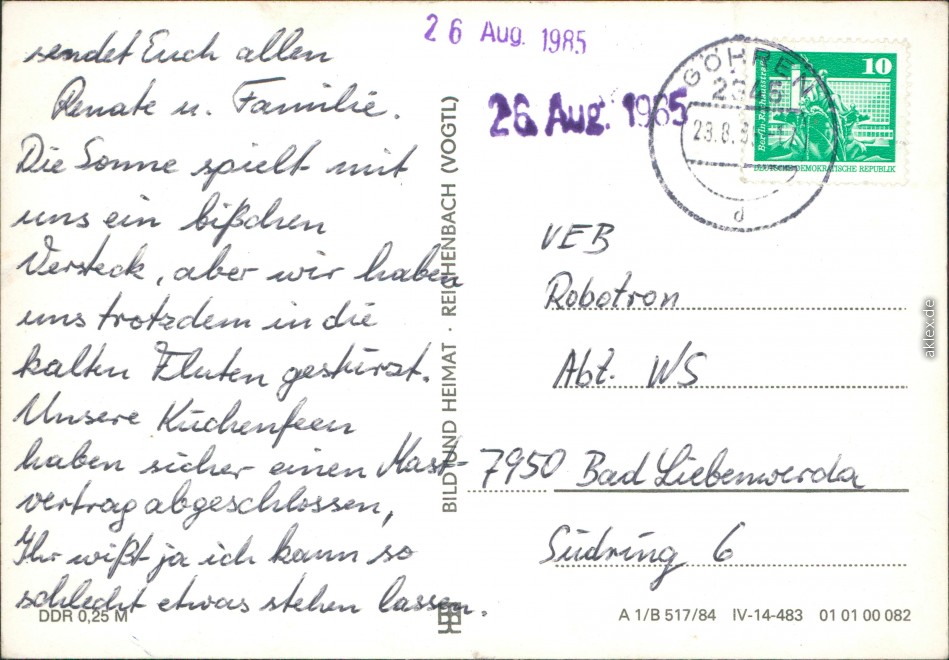 sendet Euch allen
Renate u. Familie.
Die Sonne spielt mit
uns ein bißchen
Versteck, aber wir haben
uns trotzdem in die
kalten Fluten gestürzt.
Unsere Küchenfeen
haben sicher einen Mast-
vertrag abgeschlossen,
Ihr wißt ja ich kann so
schlecht etwas stehen lassen.
DDR 0,25 M
BILD UND HEIMAT · REICHENBACH (VOGTL)
26 Aug. 1985
26 Aug. 1985
GÖHREN
d
10
Berlin Rathausstraße
DEUTSCHE DEMOKRATISCHE REPUBLIK
VEB
Robotron
Abt. WS
7950 Bad Liebenwerda
Südring 6
A 1/B 517/84 IV-14-483 01 01 00 082
aklex.de